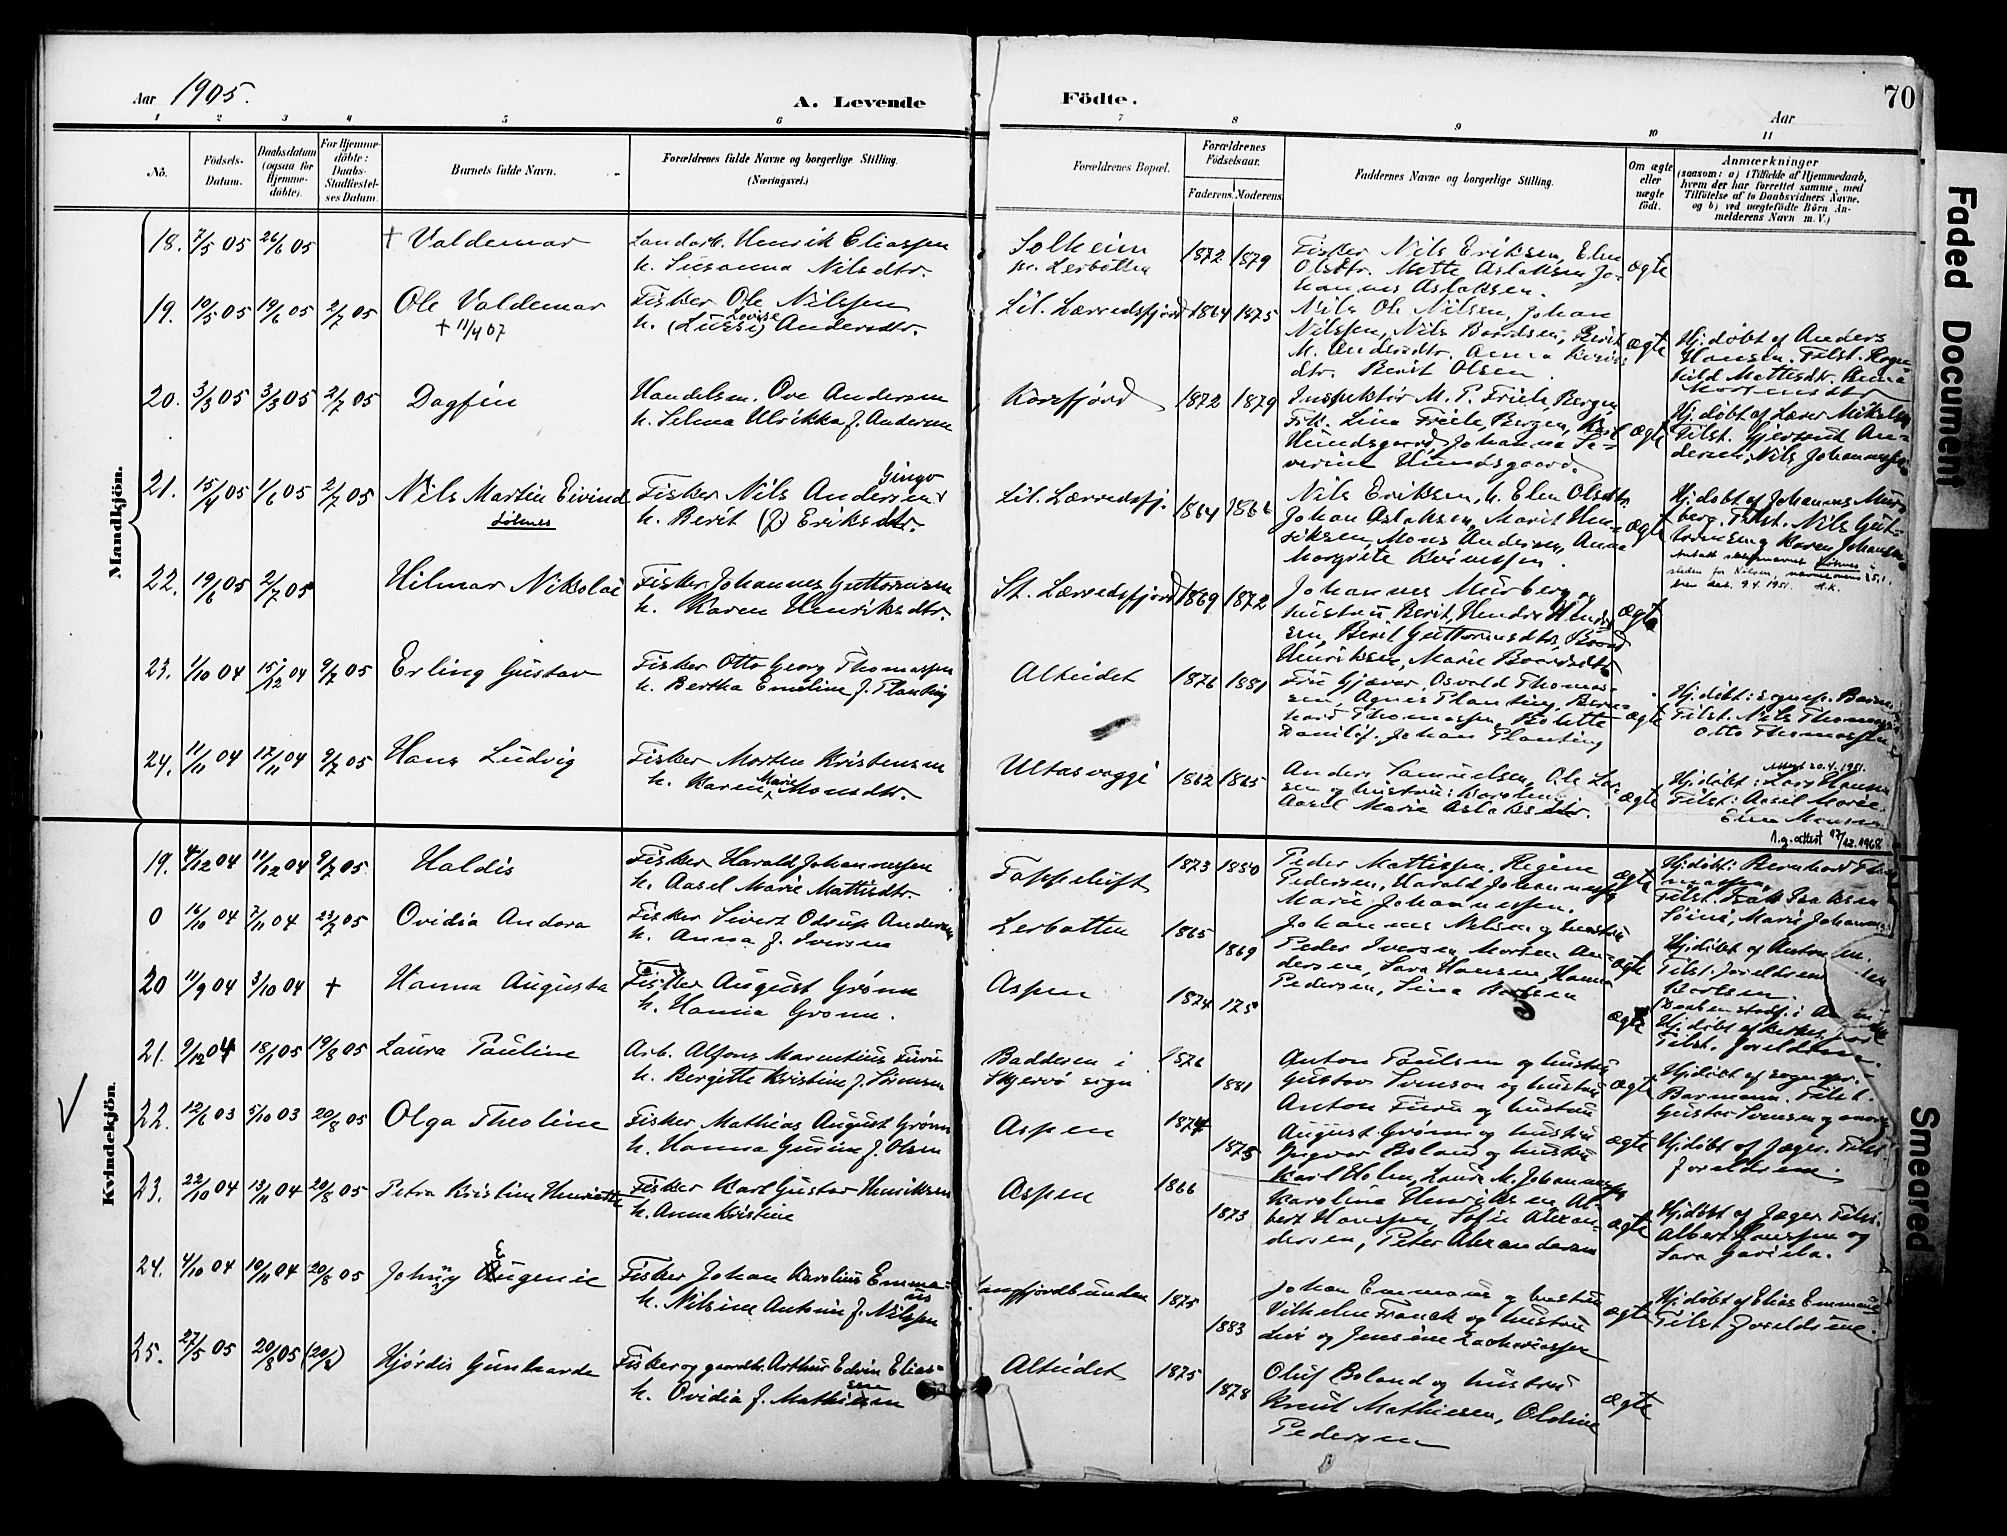 Aar 1905.
A. Levende
Födte.
Aar
70
1 2 3 4 5 6 7 8 9 10 11
No.
Födsels-Datum.
Daabsdatum (ogsaa för Hjemme-döbte).
For Hjemme-döbte: Daabs-Stadfæstel-ses Datum.
Barnets fulde Navn.
Forældrenes fulde Navne og borgerlige Stilling. (Næringsvei.)
Forældrenes Bopæl.
Forældrenes Födselsaar.
Faderens. Moderens.
Faddernes Navne og borgerlige Stilling.
Om ægte eller uægte födt.
Anmærkninger
(saasom: a) i Tilfælde af Hjemmedaab, hvem der har forrettet samme, med Tilföielse af to Daabsvidners Navne, og b) ved uægtefödte Börn An-melderens Navn m. V.)
Mandkjön.
18. 7/5 05 26/6 05 + Valdemar
Landarb. Henrik Eliassen
h. Susanna Nilsdtr.
Solheim
pr. Lerbotten
1872 1879
Fisker Nils Eriksen, Elen
Olsdtr. Mette Aslaksen, Jo-
hannes Aslaksen.
ægte
19. 10/5 05 19/6 05 2/7 05 Ole Valdemar
+ 11/4 07
Fisker Ole Nilssen
h. (Lussi) Lovise Andersdtr.
Lil. Lærredsfjord 1864 1875
Nils Ol. Nilsen, Johan
Nilssen, Nils Baardsen, Berit
M. Andersdtr. Anna
dtr. Berit Olsen.
ægte
Hj. døbt af Anders
Hansen. Tilst. Ragn
hild Mattisdtr.
20. 3/3 05 3/3 05 2/7 05 Dagfin
Handelsm. Ove Andersen
h. Selma Ulrikka f. Andersen
Korsfjord 1872 1879
Inspektør M. P. Friele, Bergen
Frk. Lina Friele, Bergen, Karl
Hundsgaard, Johanna Se-
verine Hundsgaard.
ægte
Hj. døbt af Lærer Mikelsen
Tilst. Gjertrud An-
dersen, Nils Johannessen
21. 15/4 05 1/6 05 2/7 05 Nils Martin Eivind
Solnes
Fisker Nils Andersen
h. Berit (J) Eriksdtr.
Lil. Lærredsfj. 1864 1866
Nils Eriksen, h. Elen Olsdtr.
Johan Aslaksen, Marit Hen-
riksen, Mons Andersen, Anna
Margrete
ægte
Hj. døbt af Johannes Mur-
berg. Tilst. Nils Gut-
tormsen og Karen Johansen
22. 19/6 05 2/7 05 Hilmar Nikolai
Fisker Johannes Guttormsen
h. Karen Henriksdtr.
St. Lærredsfjord 1869 1872
Johannes Murberg og
hustru Berit, Hendr. Henrik
sen, Berit Guttormsdtr, Baard
Henriksen, Marie Baardsdtr
ægte
23. 1/10 04 15/12 04 9/7 05 Erling Gustav
Fisker Otto Georg Thomassen
h. Bertha Emeline f. Planting
Alteidet 1876 1881
Fru Gjæver, Osvald Thomas-
sen, Agnes Planting, Bern-
hard Thomassen, Bolette
Danilof. Johan Planting
ægte
Hj. døbt: sognepr. Barm
Tilst. Nils Thomas
Otto Thomassen
24. 11/11 04 17/11 04 9/7 05 Hans Ludvig
Fisker Morten Kristensen
h. Karen Marie Monsdtr.
Ultasvaggi 1862 1865
Anders Samuelsen, Ole Lar-
sen og hustru: Karoline
Aasel Marie Aslaksdtr.
ægte
Attest 20.4.1951.
Hj. døbt: Lars Hansen
Tilst: Aasil Marie
Monsen
Kvindekjön.
19. 4/12 04 11/12 04 9/7 05 Haldis
Fisker Harald Johannessen
h. Aasel Marie Mattisdtr.
Toppeluft 1873 1880
Peder Mattissen, Regine
Pedersen, Harald Johannessen
Marie Johannessen.
ægte
Hj. døbt: Bernhard Tho
massen,
Tilst. Isak Isaksen
0 16/10 04 7/11 04 23/7 05 Ovidia Andora
Fisker Sivert Odrup Andersen
h. Anna f. Iversen
Lerbotten 1865 1869
Johannes Nilsen og hustru
Peder Iversen, Morten An-
dersen, Sara Hansen, Hanna
Pedersen, Sina
ægte
Hj. døbt af Anton
Tilst. Foreldrene
20 11/9 04 3/10 04 + Hanna Augusta
Fisker August Grønn
h. Hanna Grønn.
Aspen 1874 175
ægte
Tilst. Foreldrene.
21. 9/12 04 18/1 05 19/8 05 Laura Pauline
Arb. Alfons Marentius Furu
h. Bergitte Kristine f. Simonsen
Badderen i
Skjervø sogn
1876 1881
Anton Paulsen og hustru
Gustav Svenson og hustru
Anton Furu og hustru
ægte
Hj. døbt af sognepr.
Barmann. Tilst.
Gustav Svensen og
22. 12/6 03 5/10 03 20/8 05 Olga Theoline
Fisker Mathias August Grønn
h. Hanna Gurine f. Olsen
Aspen 1874 1875
August Grønn og hustru
Ingvar Boland og hustru
ægte
Hj. døbt af Jæger. Tilst
Foreldrene.
23. 22/10 04 13/11 04 20/8 05 Petra Kristine Henriette
Fisker Karl Gustav Henriksen
h. Anna Kristine
Aspen 1866 1873
Karl Holm, Laura M. Johannessen
Karoline Henriksen, Al-
bert Hanssen, Sofie Alexan-
dersen, Peter Alexandersen
ægte
Hj. døbt af Jæger. Tilst.
Albert Hanssen og
Sara
24. 4/10 04 10/11 04 20/8 05 Johnny Eugenie
Fisker Johan Karolius Emma-
us
h. Nilsine Antonie f. Nilssen
Langfjordbunden 1875 1883
Johan Emmaus og hustru
Vilhelm Franck og hustru
Levi og Jensine Zachariassen
ægte
Hj. døbt af Elias Emmaus
Tilst. Foreldrene.
25. 27/5 05 20/8 05 Hjørdis Gunharda
Fisker og gaardbr. Arthur Edvin Elias-
sen
h. Ovidia f. Mathisen
Alteidet 1875 1878
Oluf Boland og hustru
Knut Mathiesen, Oldine
Pedersen
ægte
Faded Document
Smeared